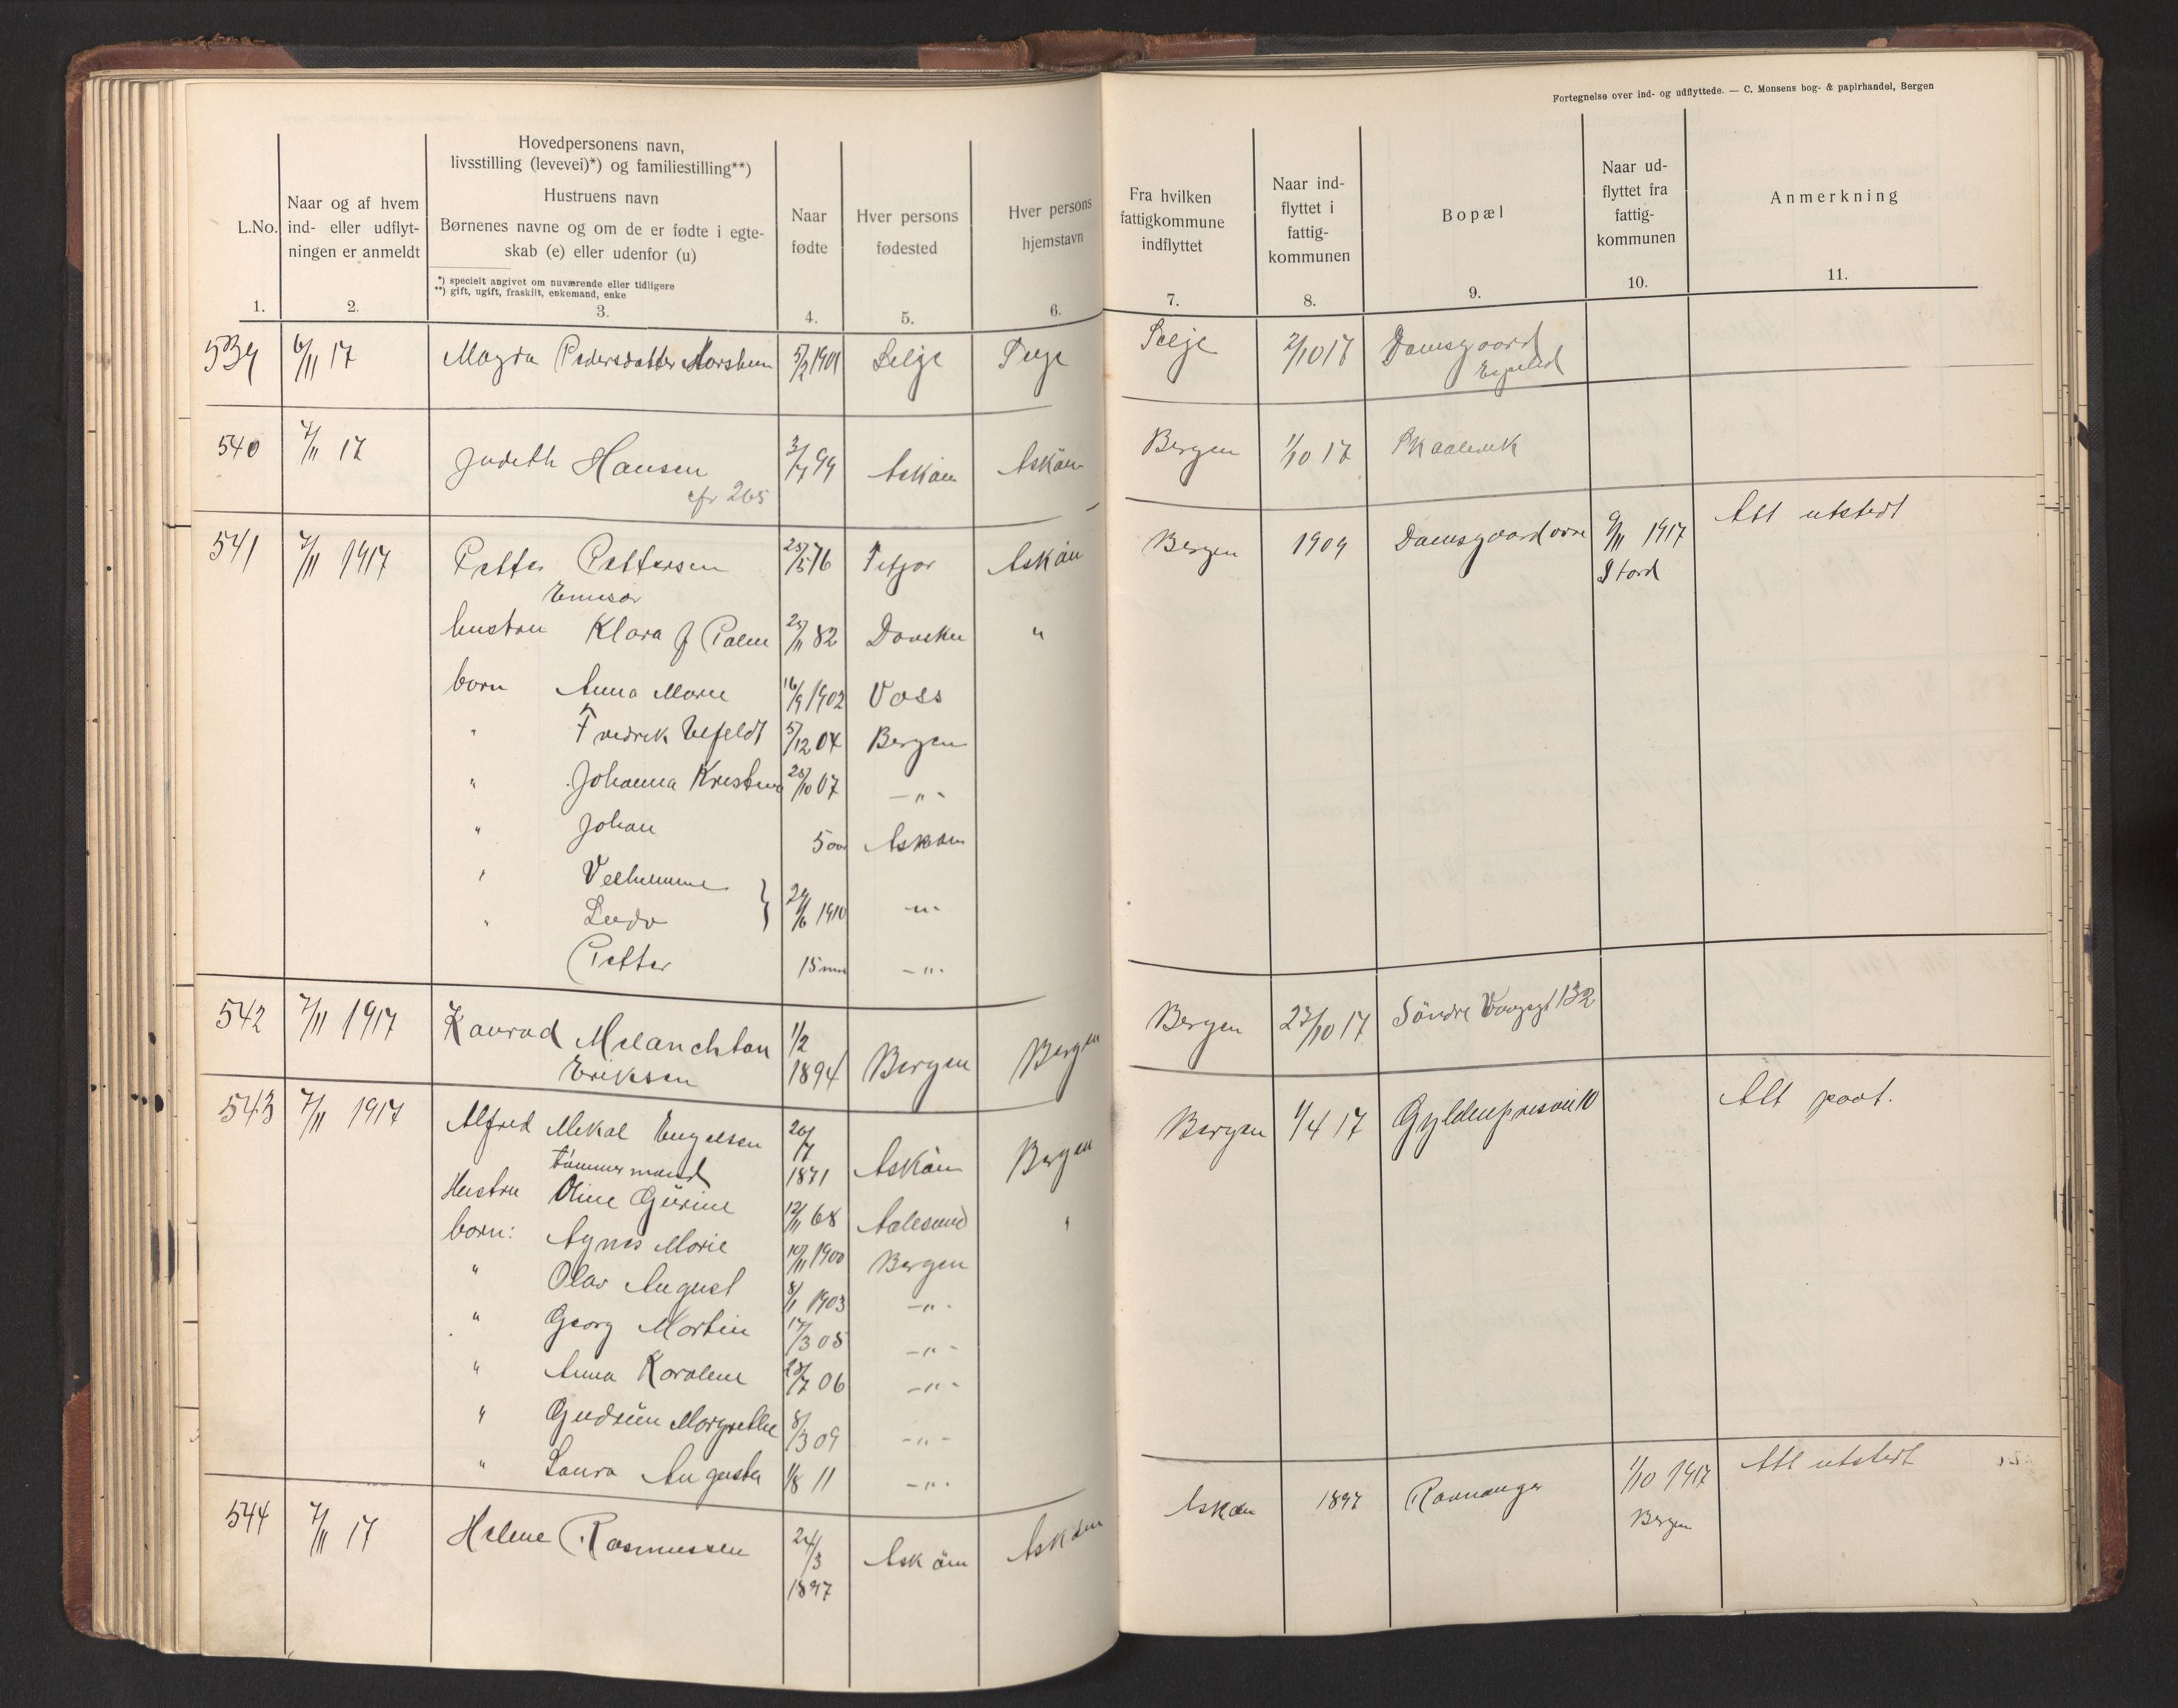 Fortegnelse over ind- og udflyttede. — C. Monsens bog- & papirhandel, Bergen
L.No.
1.
Naar og af hvem
ind- eller udflyt-
ningen er anmeldt
2.
Hovedpersonens navn,
livsstilling (levevei)*) og familiestilling**)
Hustruens navn
Børnenes navne og om de er fødte i egte-
skab (e) eller udenfor (u)
*) specielt angivet om nuværende eller tidligere
**) gift, ugift, fraskilt, enkemand, enke
3.
Naar
fødte
4.
Hver persons
fødested
5.
Hver persons
hjemstavn
6.
Fra hvilken
fattigkommune
indflyttet
7.
Naar ind-
flyttet i
fattig-
kommunen
8.
Bopæl
9.
Naar ud-
flyttet fra
fattig-
kommunen
10.
Anmerkning
11.
539 6/11 17 Magda Pedersdatter 5/2 1901 Selje Selje Selje 2/10 17 Damsgaard
540 7/11 17 Judith Hansen 3/7 99 Askøen Askøen Bergen 1/10 17 Skaalevik
cfr 265
541 7/11 1917 Petter Pettersen 25/5 76 Askøen Bergen 1909 Damsgaard øvre 9/11 1917 Att utstedt
Stord
hustru Klara J Palm 25/11 82 "
børn Anna Marie 16/9 1902 Voss
" Fredrik 5/12 04 Bergen
" Johanna Kristine 25/10 07 — " -
" Johan 5 aar Askøen
" Vilhelmine
" } 24/6 1910 - " -
Petter 15 mnd - " -
542 7/11 1917 Konrad Melanchton 1/2 Bergen 23/10 17 Søndre 132
Eriksen 1894 Bergen Bergen
543 7/11 1917 Alfred Mikal Engelsen 20/7 Bergen 1/4 17 Gyldenprisvei 10 Att paat.
tømmermand 1871 Askøen Bergen
Hustru Oline Gurine 12/11 68 Aalesund "
børn: Agnes Marie 10/11 1900 Bergen
" Olav August 8/1 1903 — " -
" Georg Martin 17/3 05 — " -
" Anna Karoline 23/7 06 — " -
" Gudrun Margrethe 8/3 09 — " -
" Laura Augusta 1/8 11 — " -
544 7/11 17 Helene Rasmussen 24/3 Askøen Askøen Askøen 1897 Ravnanger 1/10 1917 Att utstedt
1897 Bergen